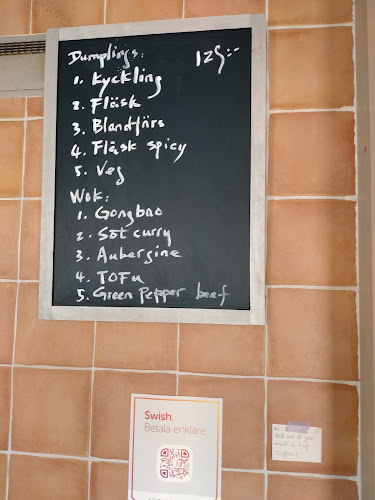 Dumplings: 125:-
1. Kyckling
2. Fläsk
3. Blandfärs
4. Fläsk spicy
5. Veg
Wok:
1. Gongbao
2. Söt curry
3. Aubergine
4. TOFU
5. Green Pepper beef
Swish.
Betala enklare